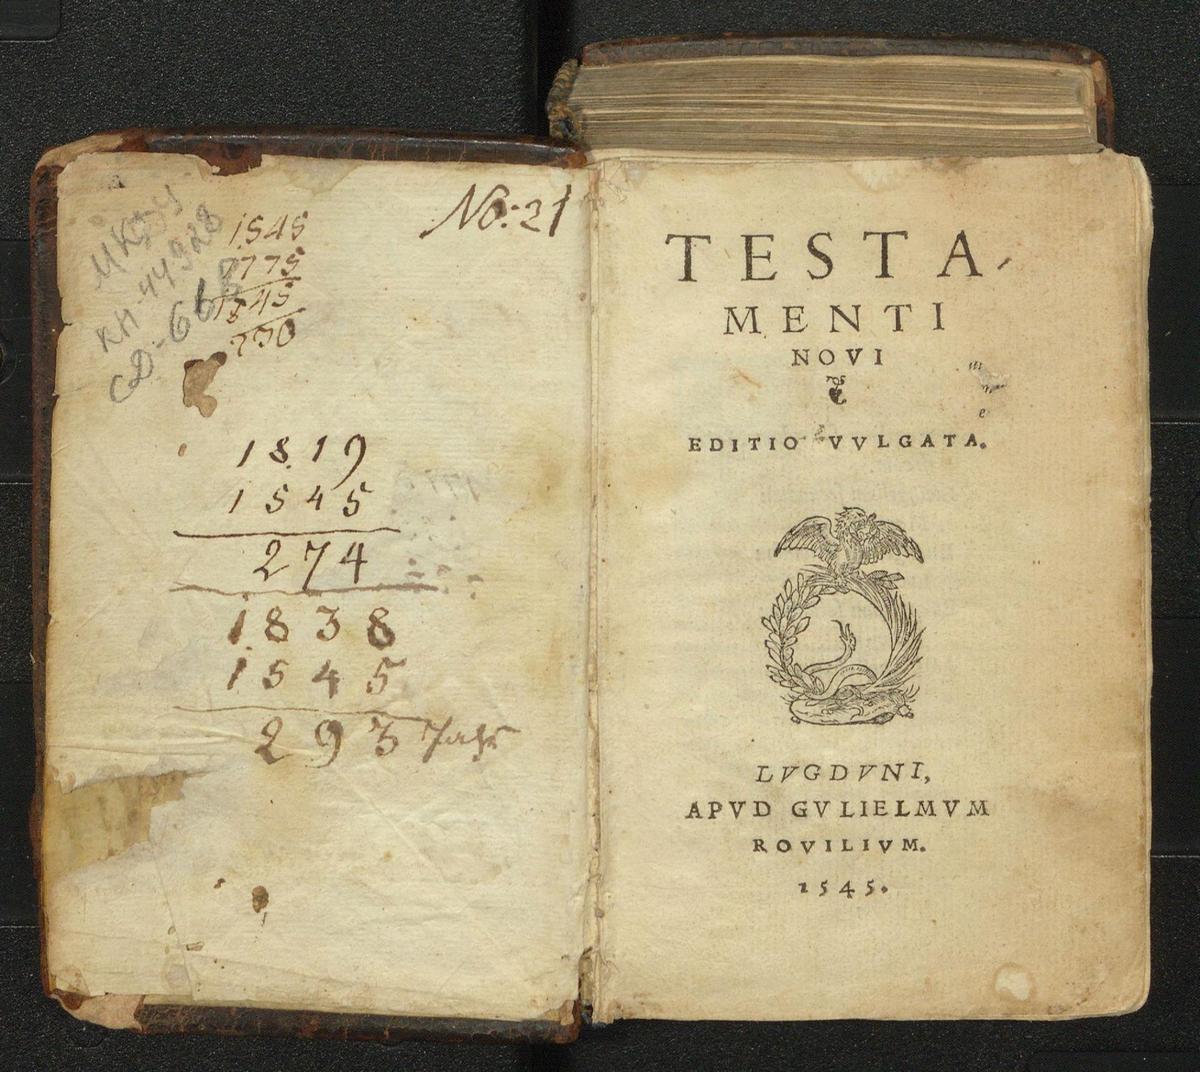 No: 21
1545
1775
1545
230
1819
1545
274
1838
1545
293 Jahr
TESTA
MENTI
NOVI
EDITIO VVLGATA.
LVGDVNI,
APVD GVLIELMVM
ROVILIVM.
1545.